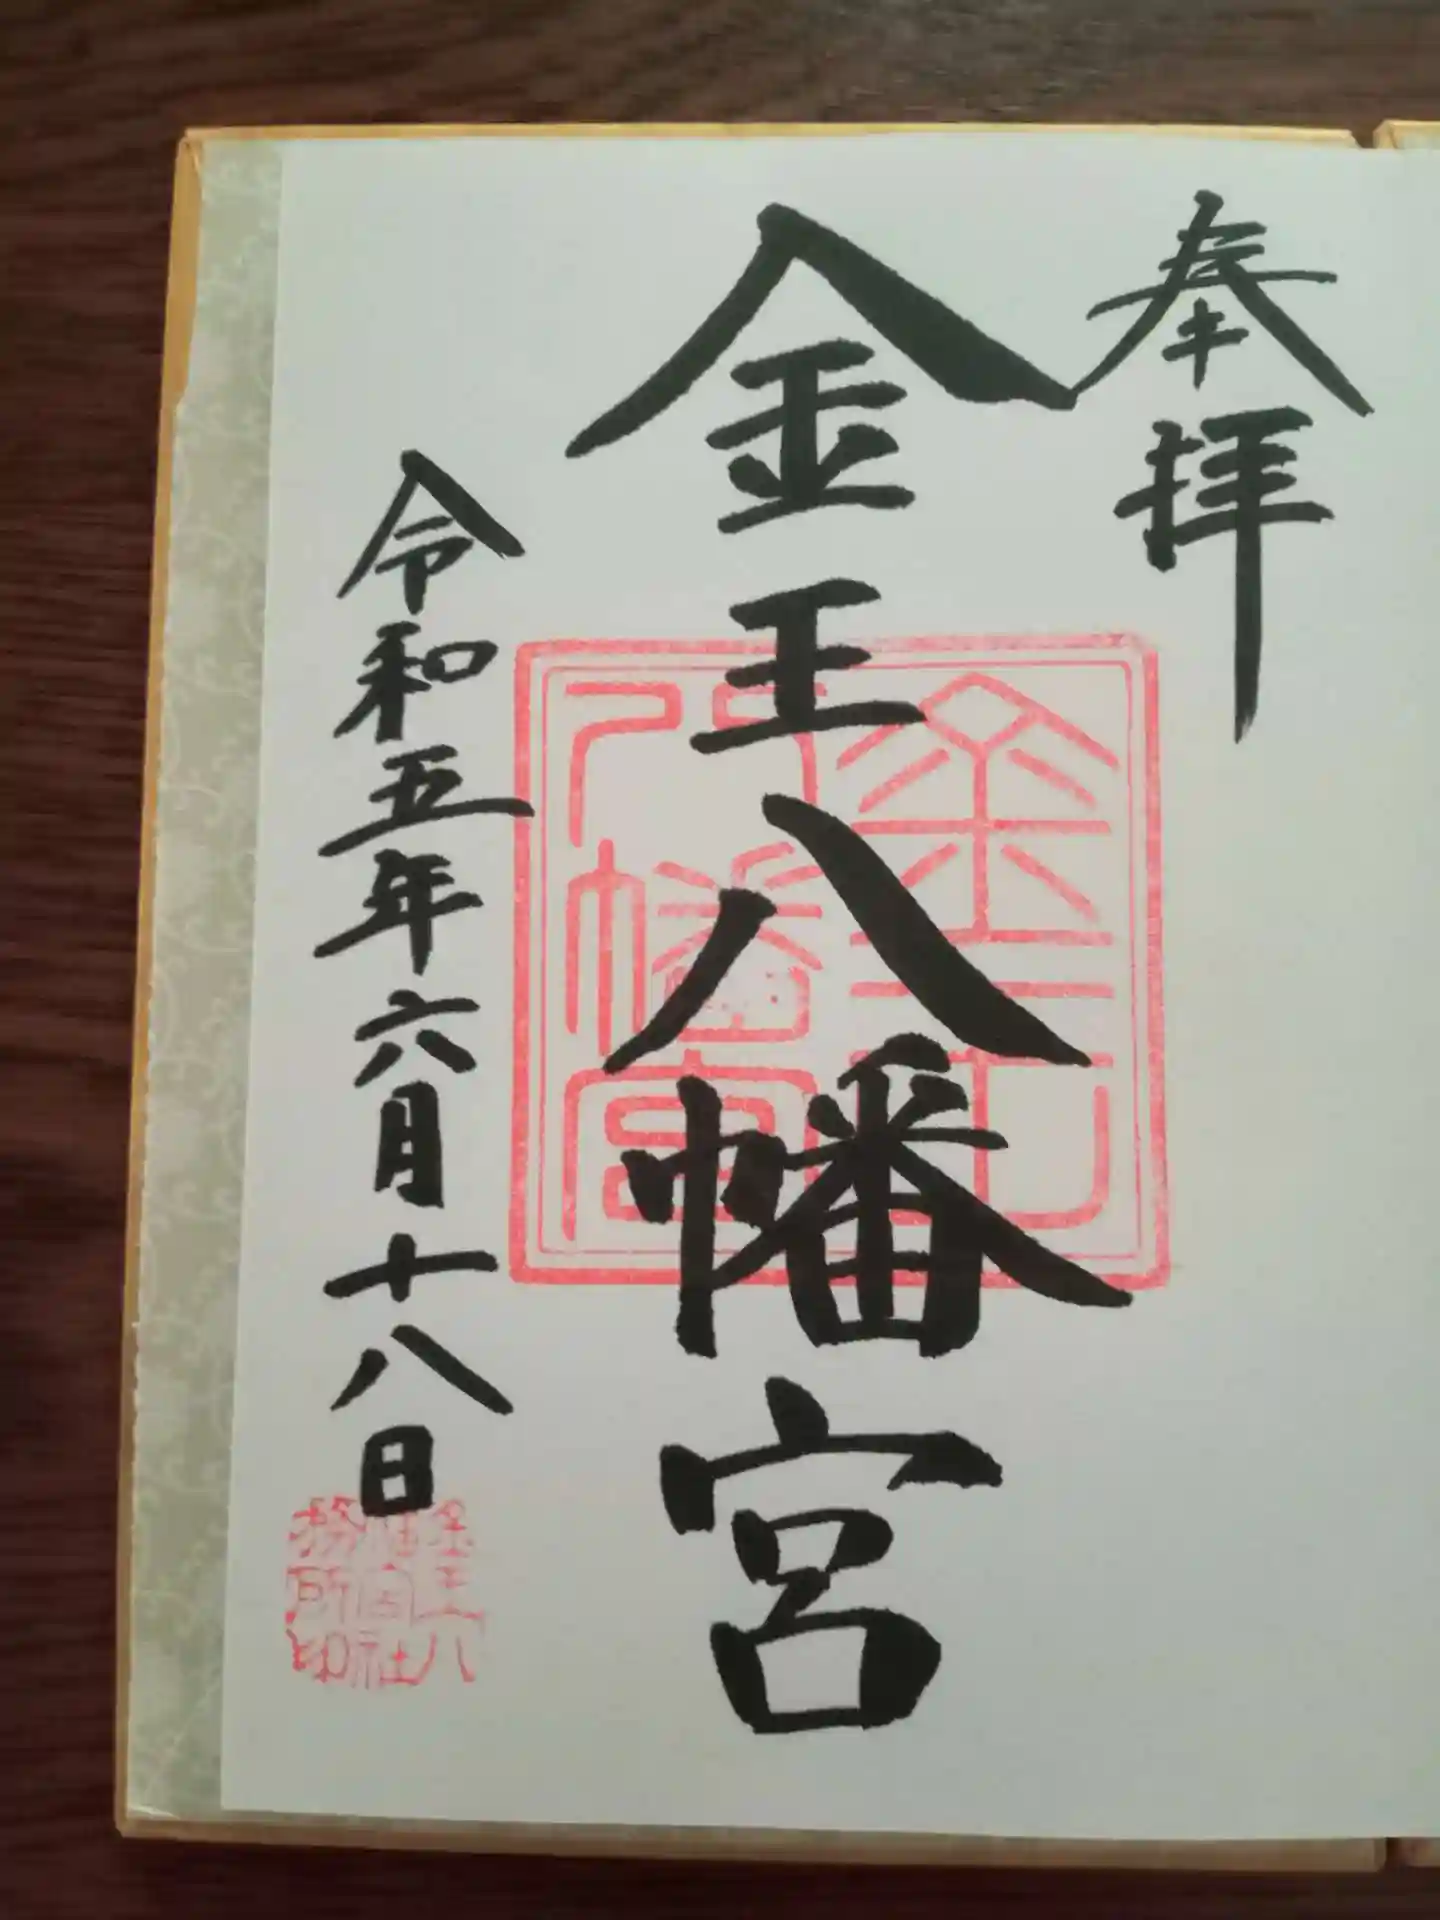 奉拝
金王八幡宮
金王八幡宮
令和五年六月十八日
金王八
幡宮社
務所印